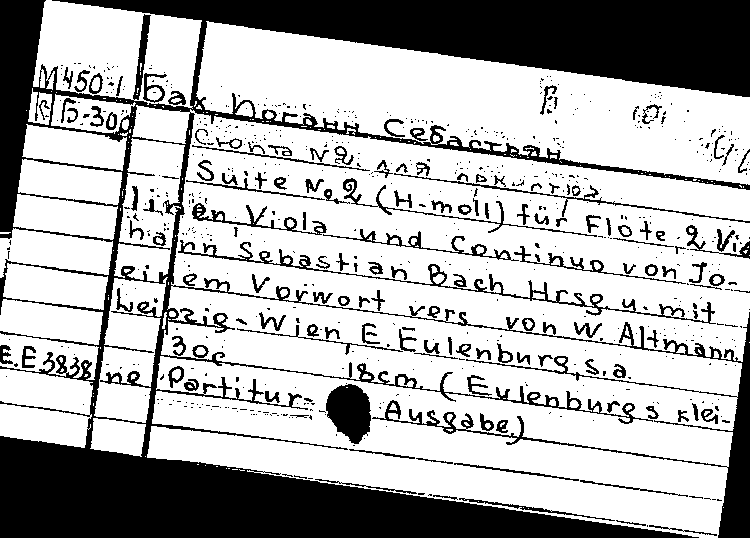 М450-1 Бах, Иоганн Себастьян
Б-300
Сюита №2 для
Suite No 2 (H-moll) für Flöte, 2 Vio-
linen, Viola und Continuo von Jo-
hann Sebastian Bach. Hrsg. u. mit
einem Vorwort vers. von W. Altmann.
Leipzig-Wien, E. Eulenburg, s.a.
30c. 18cm. (Eulenburgs klei-
E.E3838 ne Partitur-Ausgabe.)